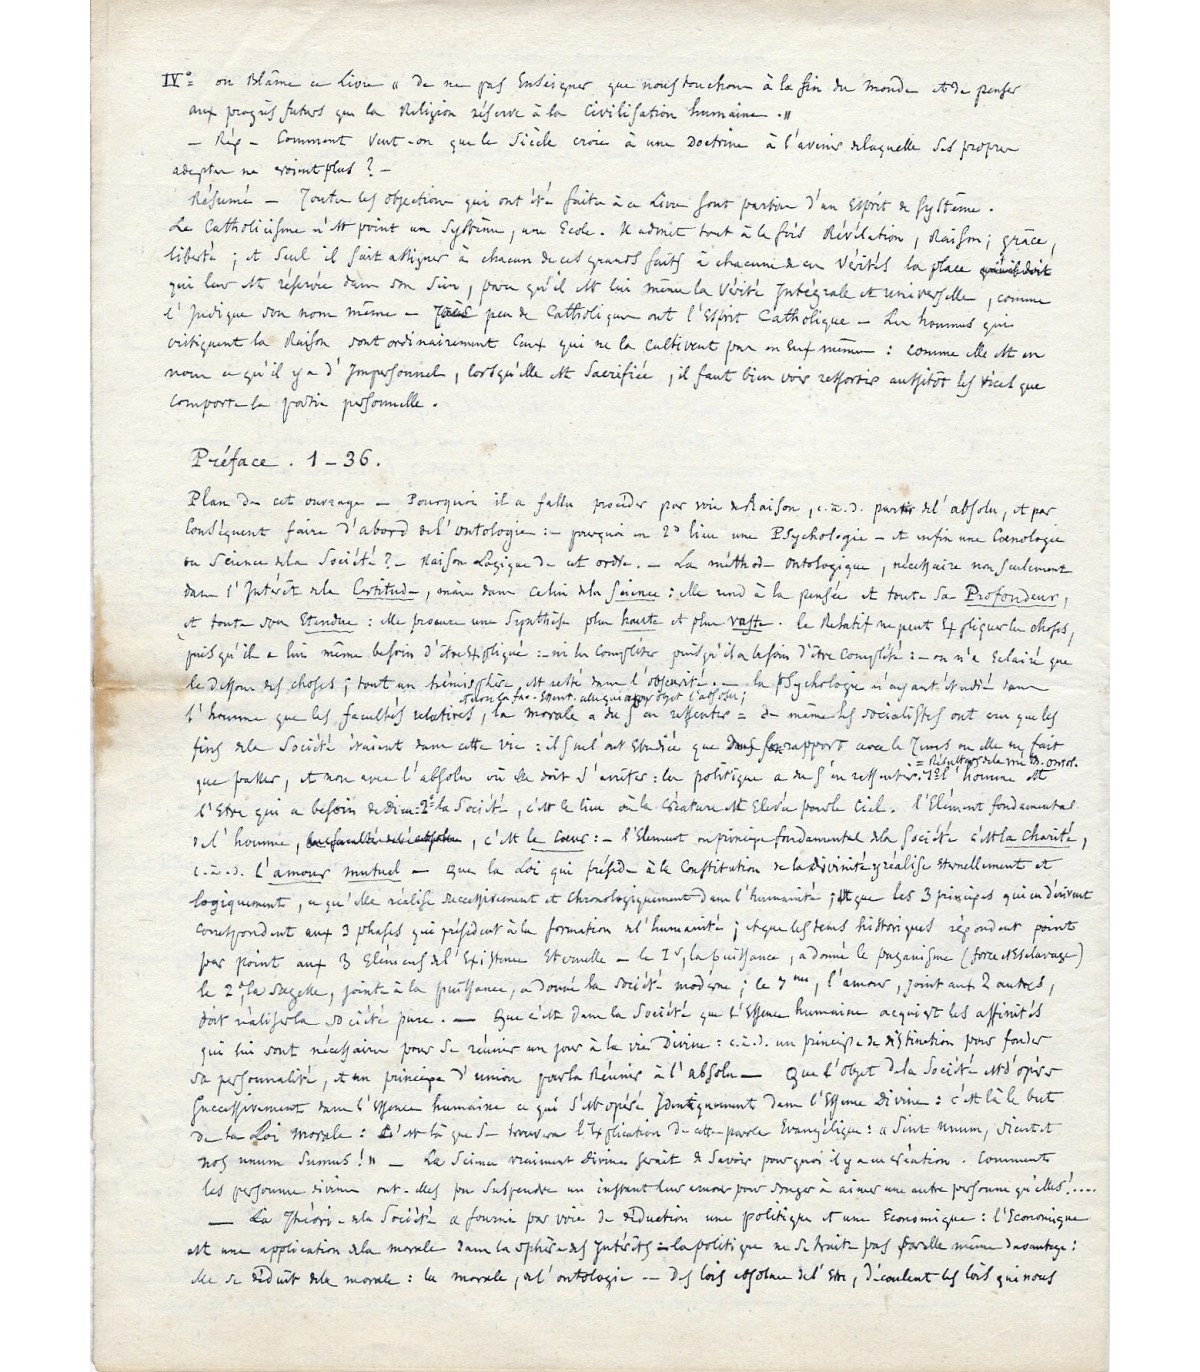 IV° = on Blâme ce Livre « de ne pas Enseigner que nous touchons à la fin du monde et de penser
aux progrès futurs que la Religion réserve à la Civilisation humaine. »
— Rép — Comment veut-on que le Siècle croie à une Doctrine à l'avenir de laquelle ses propres
adeptes ne croient plus ? —
Résumé — Toutes les objections qui ont été faites à ce Livre sont parties d'un Esprit de Système.
Le Catholicisme n'est point un Système, une Ecole. Il admet tout à la fois Révélation, Raison ; grâce,
liberté ; et Seul il sait assigner à chacun de ces grands faits à chacune de ces Vérités la place
qui leur est réservée dans son Sein, parce qu'il est lui même la Vérité Intégrale et universelle, comme
l'Indique son nom même — peu de Catholiques ont l'Esprit Catholique — Les hommes qui
critiquent la Raison sont ordinairement Ceux qui ne la Cultivent pas en Eux mêmes : comme elle est en
nous ce qu'il y a d'Impersonnel, lorsqu'elle est Sacrifiée, il faut bien voir ressortir aussitôt les vices que
comporte la partie personnelle.
Préface . 1 — 36.
Plan de cet ouvrage — Pourquoi il a fallu procéder par voie de Raison, c.-à.-d. partir de l'absolu, et par
Conséquent faire d'abord de l'ontologie : — pourquoi en 2d lieu une Psychologie — et enfin une Cœnologie
ou Science de la Société ? — Raison Logique de cet ordre. — La méthode ontologique, nécessaire non seulement
dans l'Intérêt de la Certitude, mais dans celui de la Science : elle rend à la pensée et toute sa Profondeur,
et toute son Etendue : elle procure une Synthèse plus haute et plus vaste. Le Relatif ne peut Expliquer les choses,
puisqu'il a lui même besoin d'être Expliqué : — ni les Compléter puisqu'il a besoin d'être Complété : — on n'a Eclairé que
le dessous des choses ; tout un hémisphère est resté dans l'obscurité. — la Psychologie n'ayant étudié dans
l'homme que les facultés relatives, la morale a dû s'en ressentir = de même les socialistes ont cru que les
fins de la Société étaient dans cette vie : ils ne l'ont Etudiée que rapport avec le Temps où elle ne fait
que passer, et non avec l'absolu où elle doit s'arrêter : la politique a dû s'en ressentir. = Résultats de la méth. ontol. 1° l'homme est
l'Etre qui a besoin de dieu : 2° la Société, c'est le lieu où la Créature est Elevée pour le Ciel. l'Elément fondamental
de l'homme, c'est le Cœur : — l'Element ou principe fondamental de la Société c'est la Charité,
c.-à.-d. L'amour mutuel — Que la Loi qui préside à la Constitution de la divinité y réalise éternellement et
logiquement, ce qu'elle réalise successivement et chronologiquement dans l'humanité ; et que les 3 principes qui en dérivent
correspondent aux 3 phases qui président à la formation de l'humanité ; et que les tems historiques répondent point
par point aux 3 Eléments de l'Existence Eternelle — le 1er, la puissance, a donné le paganisme (force et Esclavage)
le 2e, la Sagesse, jointe à la puissance, a donné la société moderne ; le 3me, l'amour, joint aux 2 autres,
doit réaliser la société pure. — Que c'est dans la Société que l'Essence humaine acquiert les affinités
qui lui sont nécessaires pour se réunir un jour à la vie Divine : c.à.d. un principe de distinction pour fonder
sa personnalité, et un principe d'union pour la Réunir à l'absolu — Que l'Objet de la Société est d'opérer
Successivement dans l'Essence humaine ce qui s'est opéré Identiquement dans l'Essence Divine : c'est là le but
de la Loi morale : C'est là que se trouvera l'Explication de cette parole Evangélique : « Sint unum, sicut et
nos unum sumus ! » — La Science vraiment Divine serait de Savoir pourquoi il y a eu création. Comment
les personnes divines ont-elles pu suspendre un instant leur amour pour songer à aimer une autre personne qu'elles !.....
— La Théorie de la Société a fourni par voie de déduction une politique et une Economique : l'Economique
est une application de la morale dans la sphère des Intérêts : la politique ne se traite pas d'elle même davantage :
elle se déduit de la morale : la morale, de l'ontologie — Des lois absolues de l'Etre, découlent les lois qui nous